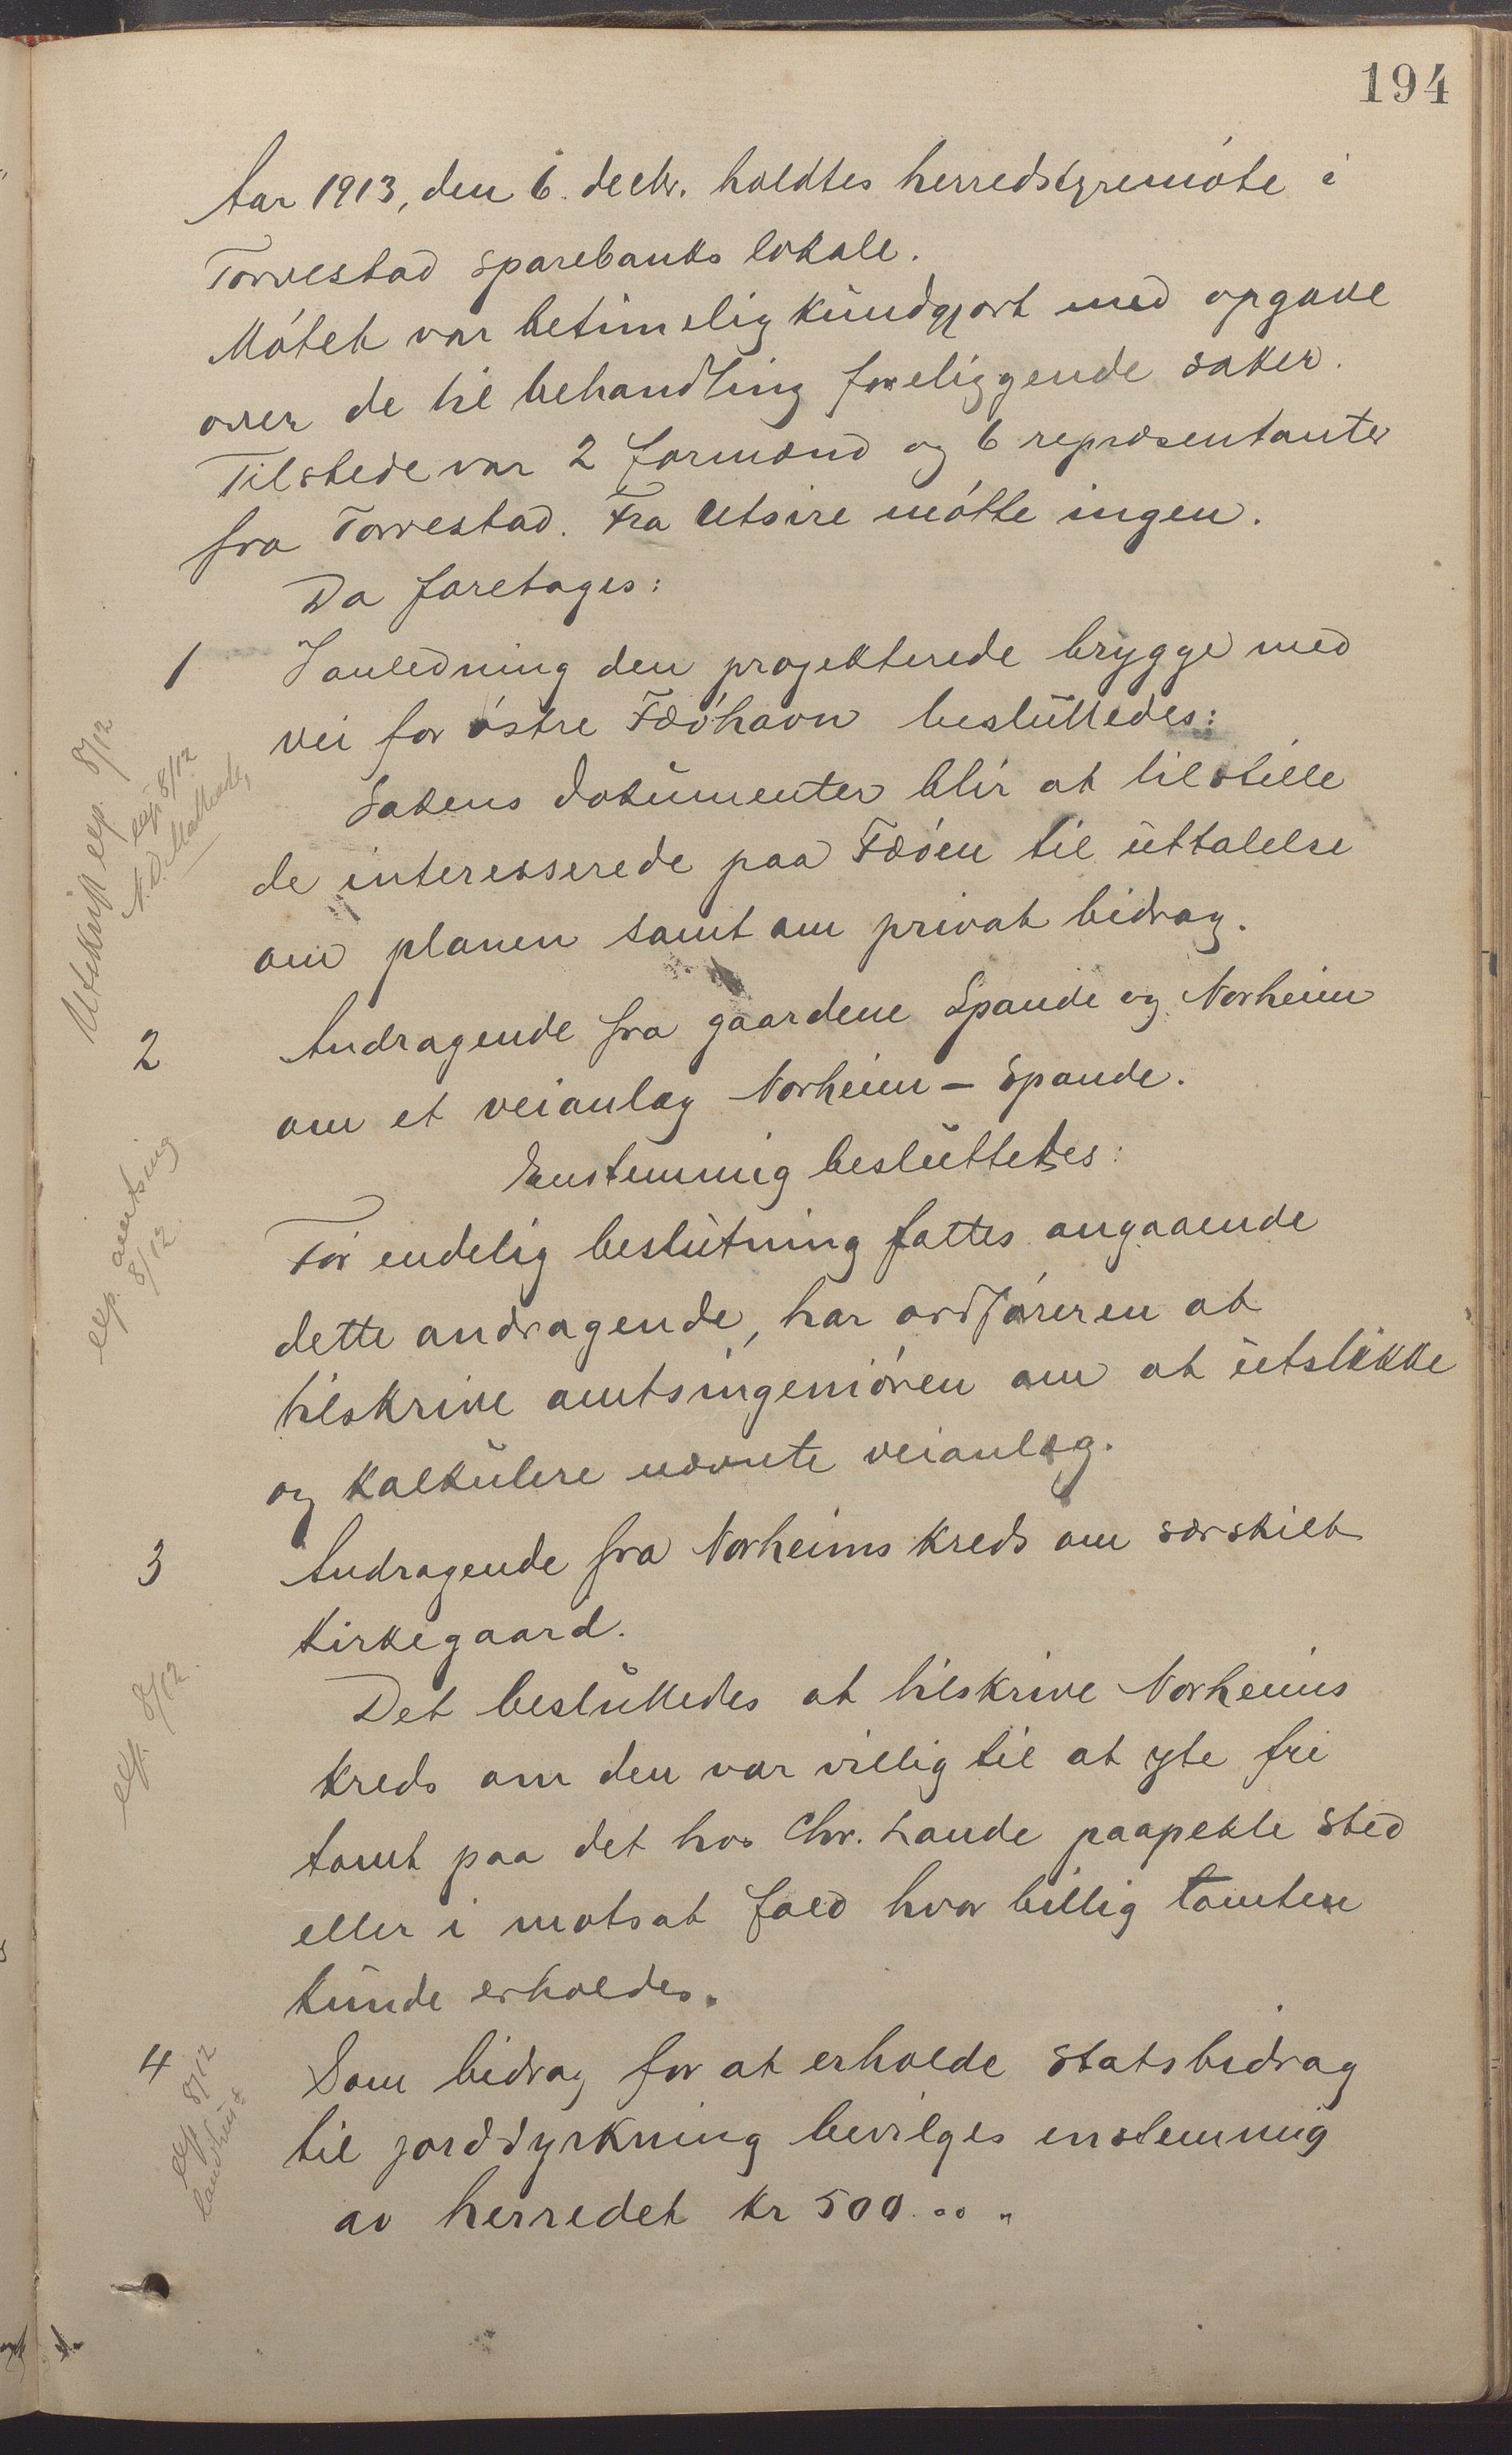 194
Aar 1913, den 6. decbr. holdtes herredstyremöte i
Torvestad sparebanks lokale.
Mötet var betimelig kundgjort med opgave
over de til behandling foreliggende saker.
Tilstede var 2 formænd og 6 repræsentanter
fra Torvestad. Fra Utsire mötte ingen.
Da foretages:
1 I anledning den projekterede brygge med
vei for östre Fæöhavn besluttedes:
Utskrift exp. 8/12
exp 8/12
Sakens dokumenter blir at tilstille
de interesserede paa Fæöen til uttalelse
om planen samt om privat bidrag.
2 Andragende fra gaardene Spande og Norheim
om et veianlæg Norheim - Spande.
Enstemmig besluttedes:
exp. amtsing
8/12
För endelig beslutning fattes angaaende
dette andragende, har ordföreren at
tilskrive amtsingeniören om at utstikke
og kalkulere nævnte veianlæg.
3 Andragende fra Norheims kreds om særskilt
kirkegaard.
exp. 8/12.
Det besluttedes at tilskrive Norheims
kreds om den var villig til at yte fri
tomt paa det hos Chr. Lande paapekte sted
eller i motsat fald hvor billig tomten
kunde erholdes.
4 Som bidrag for at erholde statsbidrag
exp 8/12
til jorddyrkning bevilges enstemmig
av herredet kr 500.00.